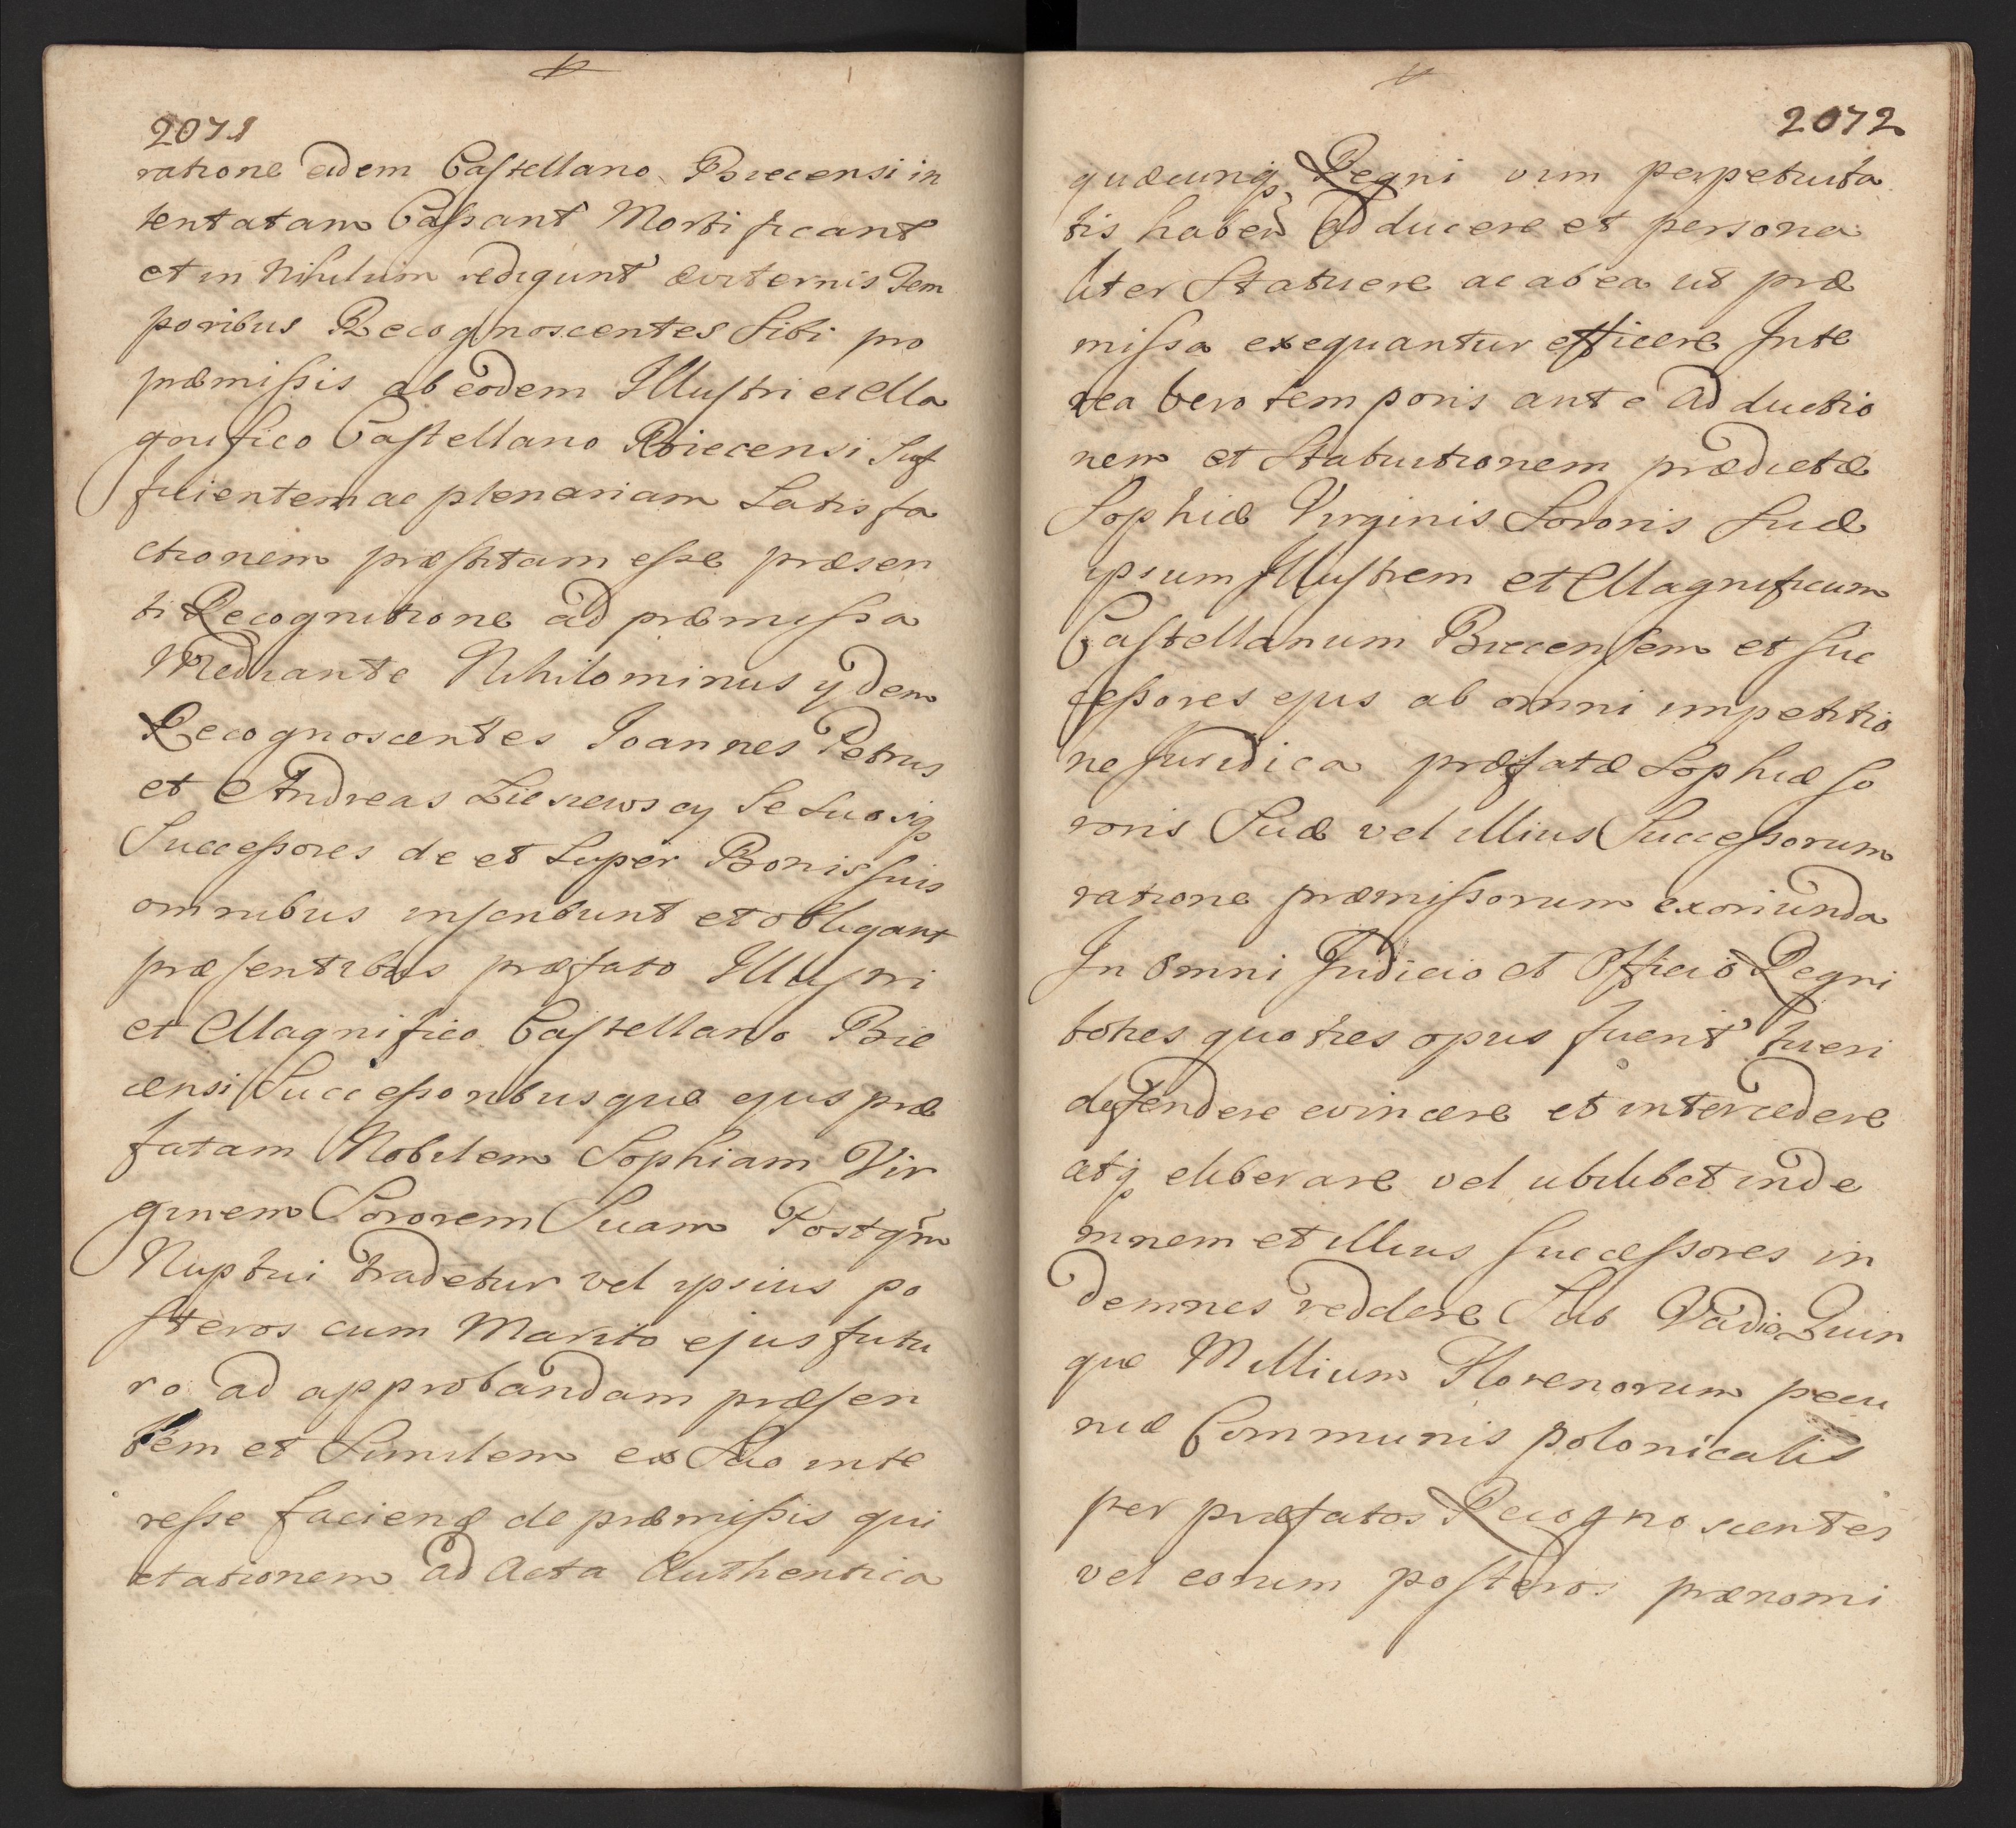 2071
ratione eidem Castellano Biecensi in
tentatam Cassant Mortificant
et in Nihilum redigunt æviternis Tem
poribus Recognoscentes Sibi pro
præmissis ab eodem Illustri et Ma
gnifico Castellano Biecensi Suf
ficientem ac plenariam Satisfa
ctionem præstitam esse præsen
ti Recognitione ad præmissa
Mediante Nihilominus ydem
Recognoscentes Joannes Petrus
et Andreas Se Suosq
Successores de et Super Bonis suis
omnibus inscribunt et obligant
præsentibus præfato Illustri
et Magnifico Castellano Bie
censi Successoribusque ejus præ
fatam Nobilem Sophiam Vir
ginem Sororem Suam Postqm
Nuptui tradetur vel ipsius po
steros cum Marito ejus futu
ro ad approbandam præsen
tem et Similem ex Suo inte
resse faciend de præmissis qui
etationem ad Acta Authentica
2072
quæcunq Regni vim perpetuita
tis haben adducere et persona
liter Statuere ac ab ea ut præ
missa exequantur efficere Inte
rea vero temporis ante adductio
nem et Statuitionem prædictæ
Sophiæ Virginis Sororis Suæ
ipsum Illustrem et Magnificum
Castellanum Biecensem et Suc
cessores ejus ab omni impetitio
ne juridica præfatæ Sophiæ So
roris Suæ vel illius Successorum
ratione præmissorum exoriunda
In omni Judicio et Officio Regni
toties quoties opus fuerit tueri
defendere evincere et intercedere
atq eliberare vel ubilibet inde
mnem et illius Successores in
demnes reddere Sub Vadio Quin
que Millium Florenorum pecu
niæ Communis polonicalis
per præfatos Recognoscentes
vel eorum posteros prænomi